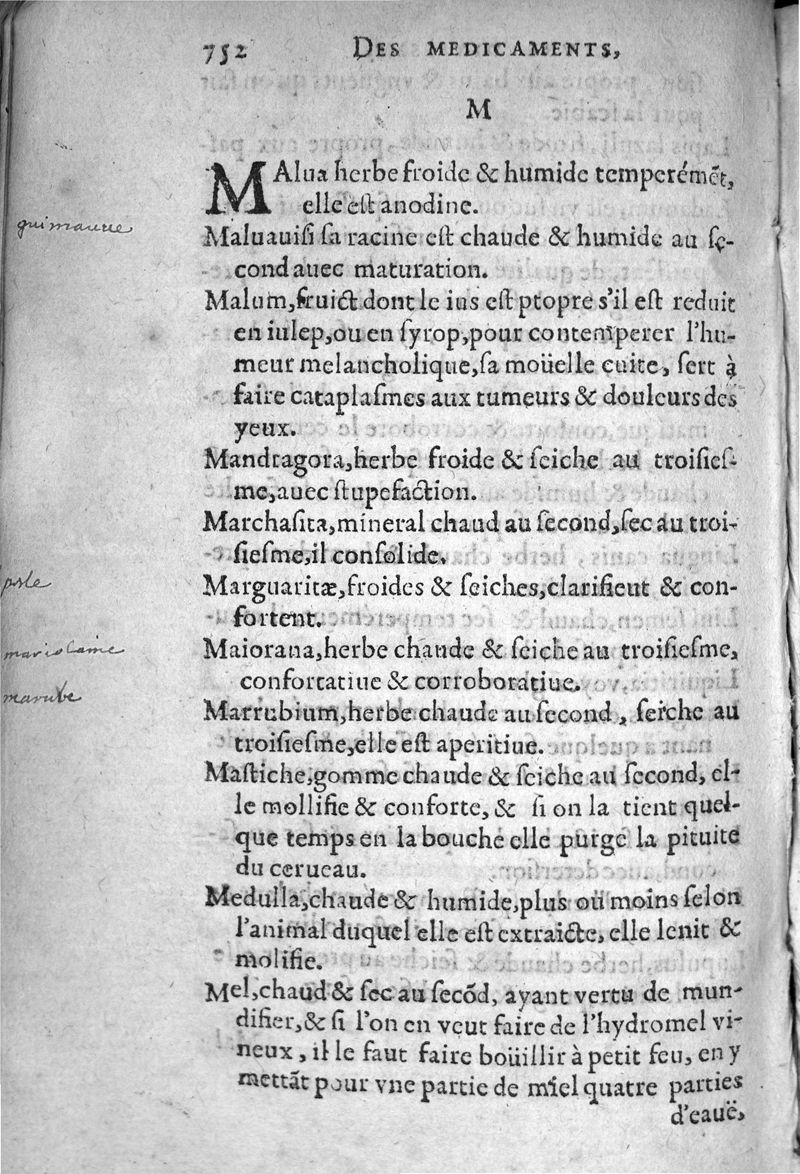 752 DES MEDICAMENTS,
M
MAlua herbe froide & humide temperémēt,
elle est anodine.
guimauue
Maluauisi sa racine est chaude & humide au se-
cond auec maturation.
Malum, fruict dont le ius est ptopre s'il est reduit
en iulep, ou en syrop, pour contemperer l'hu-
meur melancholique, sa moüelle cuite, sert à
faire cataplasmes aux tumeurs & douleurs des
yeux.
Mandragora, herbe froide & seiche au troisies-
me, auec stupefaction.
Marchasita, mineral chaud au second, sec au troi-
siesme, il consolide.
perle
Marguaritæ, froides & seiches, clarifient & con-
fortent.
mariolaine
Maiorana, herbe chaude & seiche au troisiesme,
confortatiue & corroboratiue.
marube
Marrubium, herbe chaude au second, seiche au
troisiesme, elle est aperitiue.
Mastiche, gomme chaude & seiche au second, el-
le mollifie & conforte, & si on la tient quel-
que temps en la bouche elle purge la pituite
du cerueau.
Medulla, chaude & humide, plus ou moins selon
l'animal duquel elle est extraicte, elle lenit &
molifie.
Mel, chaud & sec au secōd, ayant vertu de mun-
difier, & si l'on en veut faire de l'hydromel vi-
neux, il le faut faire boüillir à petit feu, en y
mettāt pour vne partie de miel quatre parties
d'eauë,